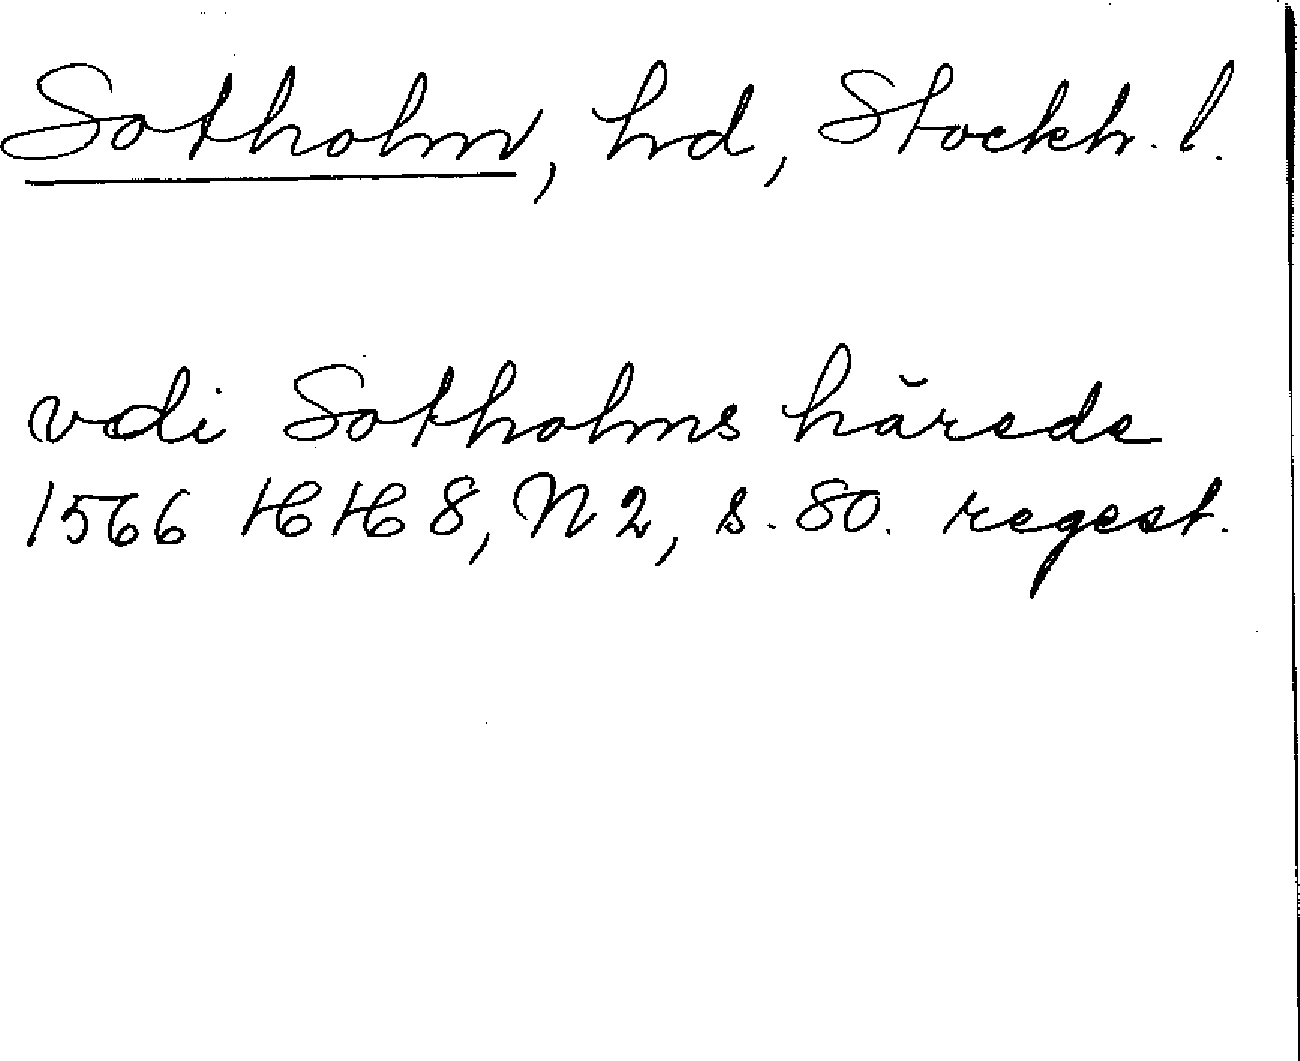 Sotholm, hd, Stockh. l.
vdi Sotholms härede
1566 HH 8, N 2, s. 80. regest.